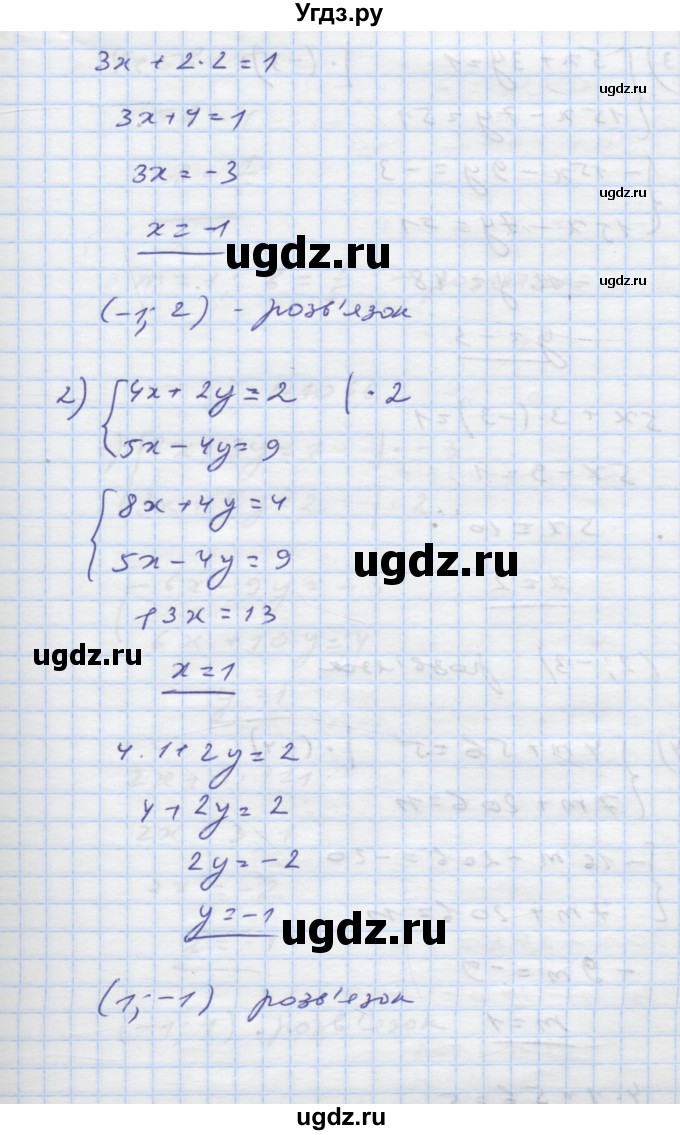 Угдз.ру
3x + 2·2 = 1
ugdz.ru
3x + 4 = 1
3x = -3
ugdz.ru
x = -1
ugdz.ru
ugdz.ru
(-1; 2) - розв'язок
2) { 4x + 2y = 2 | · 2
5x - 4y = 9
{ 8x + 4y = 4
5x - 4y = 9
ugdz.ru
13x = 13
ugdz.ru
x = 1
4·1 + 2y = 2
4 + 2y = 2
2y = -2
y = -1
ugdz.ru
(1; -1) розв'язок
ugdz.ru